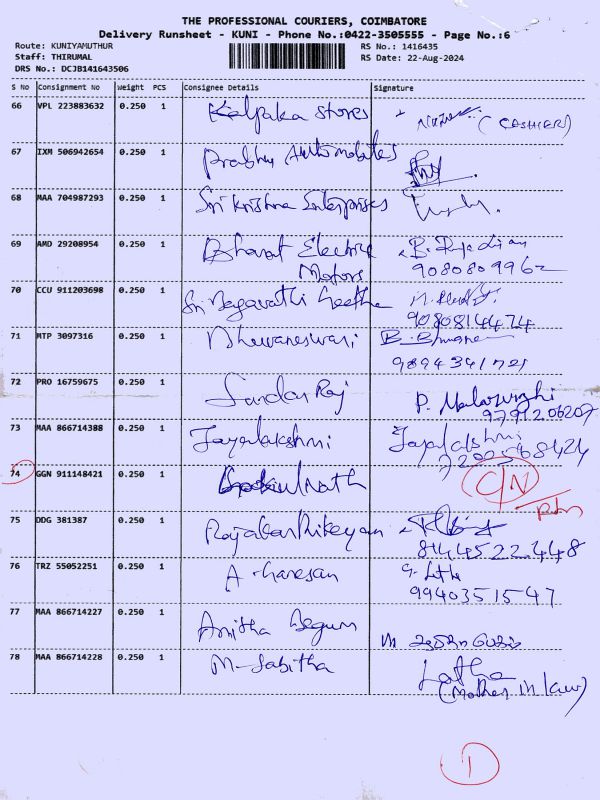 THE PROFESSIONAL COURIERS, COIMBATORE
Delivery Runsheet - KUNI - Phone No.:0422-3505555 - Page No.:6
Route: KUNIYAMUTHUR
Staff: THIRUMAL
DRS No.: DCJB141643506
RS No.: 1416435
RS Date: 22-Aug-2024
S No Consignment No Weight PCS Consignee Details Signature
66 VPL 223883632 0.250 1 Kalpaka Stores (CASHIER)
67 IXM 506942654 0.250 1 Prabhu Automobiles
68 MAA 704987293 0.250 1 Sri Krishna Enterprises
69 AMD 29208954 0.250 1 Bharat Electric B.
Motors 9080809962
70 CCU 911203698 0.250 1 Sri
9080814474
71 MTP 3097316 0.250 1 Bhuvaneswari B.
9894341721
72 PRO 16759675 0.250 1 Sundar Raj P.
9791206207
73 MAA 866714388 0.250 1 Jayalakshmi Jayalakshmi
7200568424
74 GGN 911148421 0.250 1 Gokulnath C/N
75 DDG 381387 0.250 1
8144522448
76 TRZ 55052251 0.250 1 A. Ganesan G. Latha
9940351547
77 MAA 866714227 0.250 1 Anitha Begum
78 MAA 866714228 0.250 1 M. Sabitha Latha
(Mother in law)
1